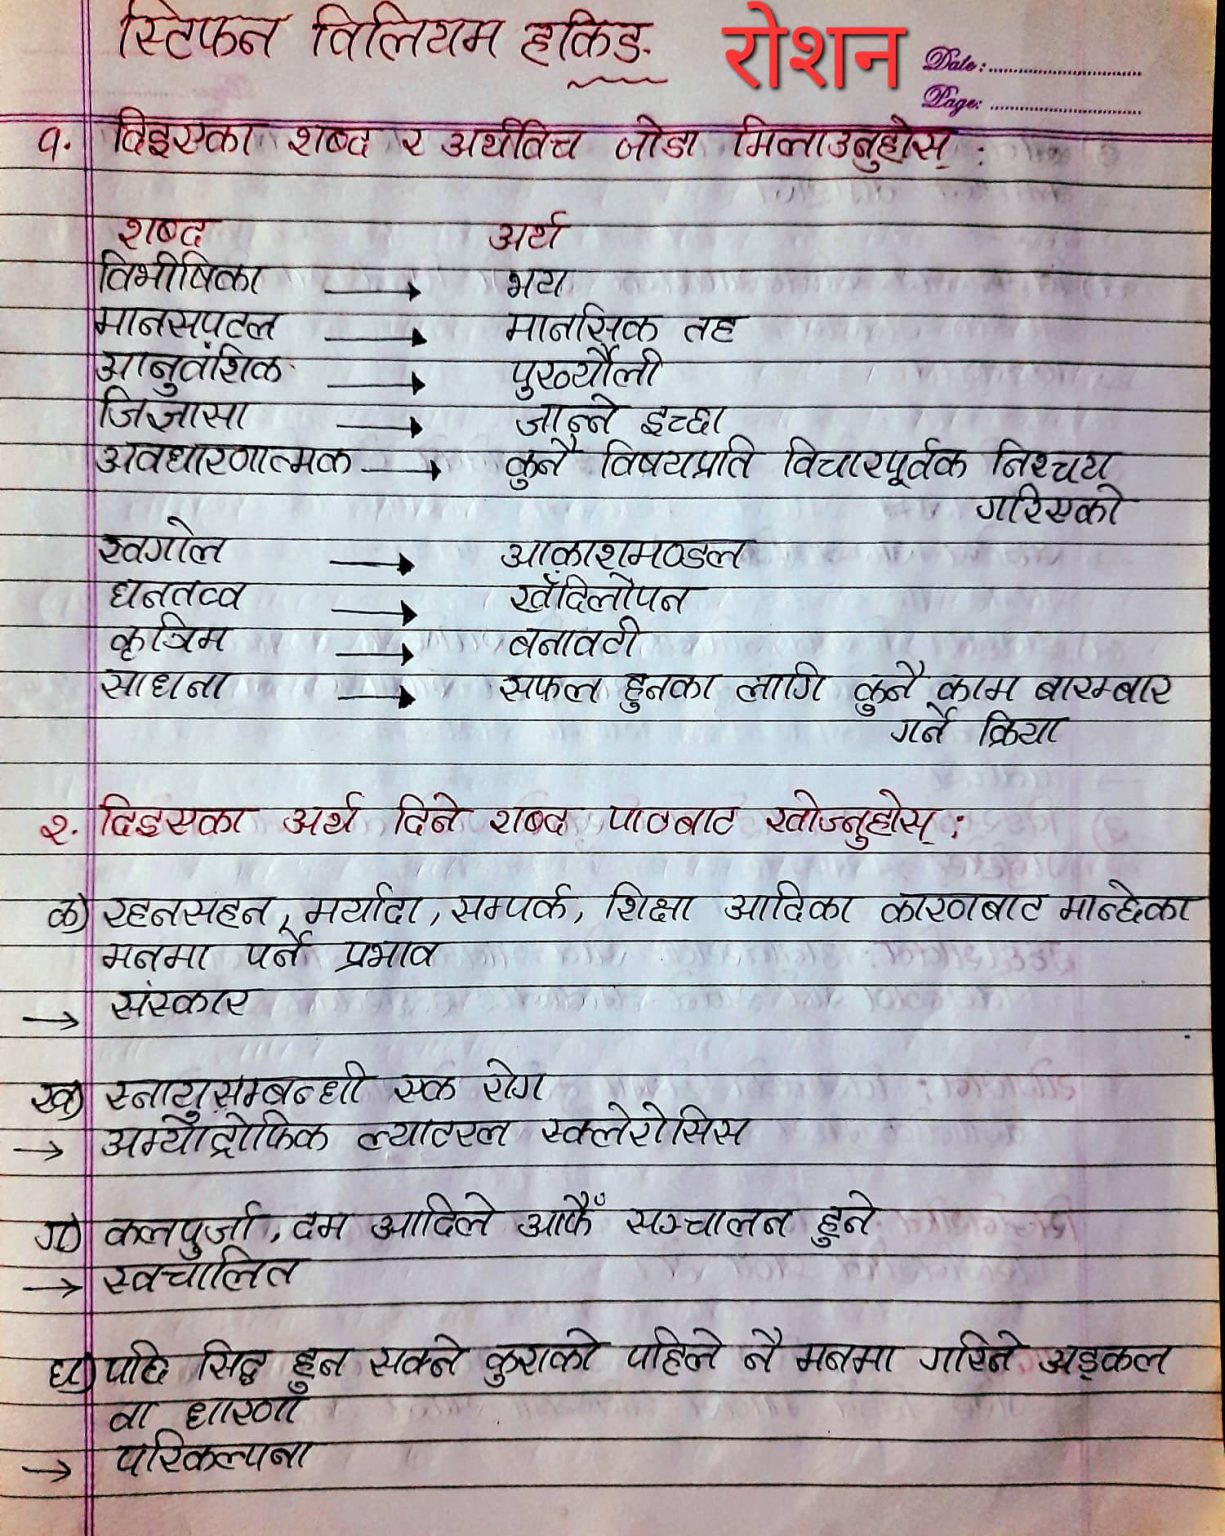 स्टिफन विलियम हकिङ
रोशन
Date:
Page:
१. दिइएका शब्द र अर्थबिच जोडा मिलाउनुहोस् :
शब्द अर्थ
विभीषिका → भय
मानसपटल → मानसिक तह
आनुवंशिक → पुर्ख्यौली
जिज्ञासा → जान्ने इच्छा
अवधारणात्मक → कुनै विषयप्रति विचारपूर्वक निश्चय
गरिएको
खगोल → आकाशमण्डल
घनतत्व → खँदिलोपन
कृत्रिम → बनावटी
साधना → सफल हुनका लागि कुनै काम बारम्बार
गर्ने क्रिया
२. दिइएका अर्थ दिने शब्द पाठबाट खोज्नुहोस् :
क) रहनसहन, मर्यादा, सम्पर्क, शिक्षा आदिका कारणबाट मान्छेका
मनमा पर्ने प्रभाव
→ संस्कार
ख) स्नायुसम्बन्धी एक रोग
→ अम्योट्रोफिक ल्याटरल स्क्लेरोसिस
ग) कलपुर्जा, दम आदिले आफैँ सञ्चालन हुने
→ स्वचालित
घ) पछि सिद्ध हुन सक्ने कुराको पहिले नै मनमा गरिने अड्कल
वा धारणा
→ परिकल्पना